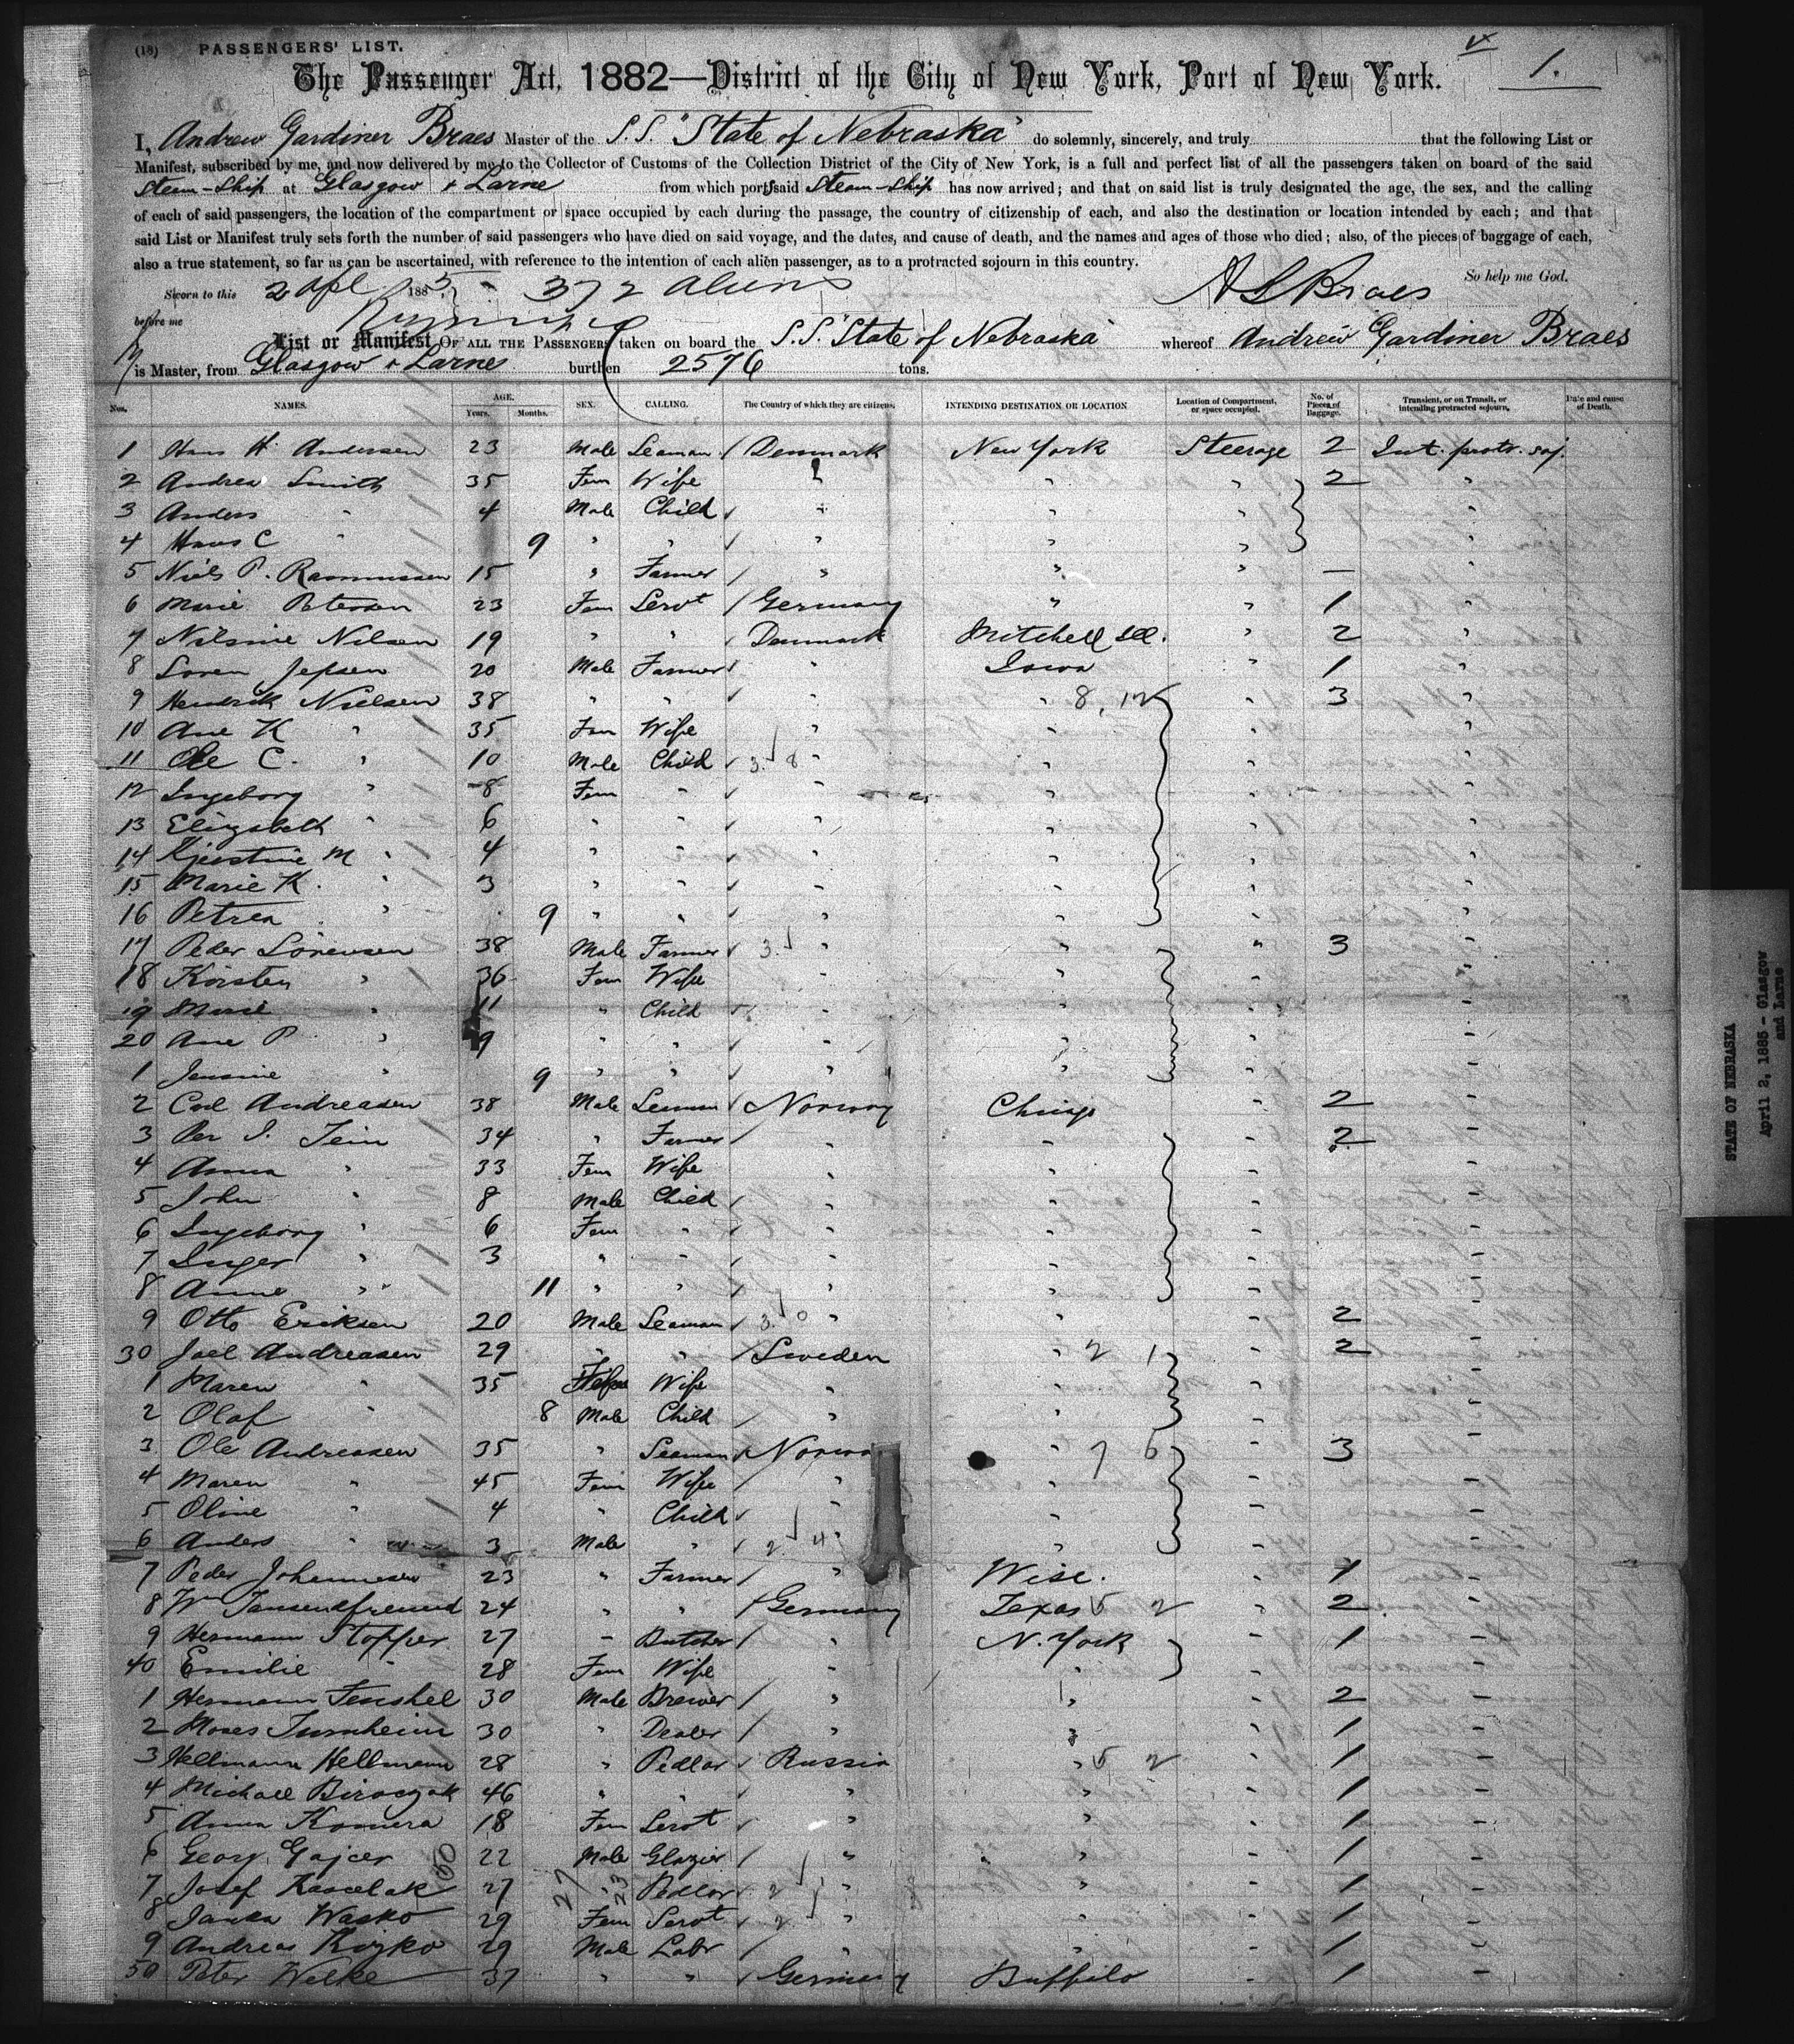 (13) PASSENGERS' LIST.
1.
The Passenger Act, 1882—District of the City of New York, Port of New York.
I, Andrew Gardiner Braes Master of the S.S. "State of Nebraska" do solemnly, sincerely, and truly that the following List or
Manifest, subscribed by me, and now delivered by me to the Collector of Customs of the Collection District of the City of New York, is a full and perfect list of all the passengers taken on board of the said
Steam-Ship at Glasgow + Larne from which ports said Steam-Ship has now arrived; and that on said list is truly designated the age, the sex, and the calling
of each of said passengers, the location of the compartment or space occupied by each during the passage, the country of citizenship of each, and also the destination or location intended by each; and that
said List or Manifest truly sets forth the number of said passengers who have died on said voyage, and the dates, and cause of death, and the names and ages of those who died; also, of the pieces of baggage of each,
also a true statement, so far as can be ascertained, with reference to the intention of each alien passenger, as to a protracted sojourn in this country.
So help me God.
Sworn to this 2 Apl 1885 - 372 Aliens A G Braes
before me
List or Manifest OF ALL THE PASSENGERS taken on board the S.S. "State of Nebraska" whereof Andrew Gardiner Braes
is Master, from Glasgow + Larne burthen 2576 tons.
Nos. NAMES. AGE. Years. Months. SEX. CALLING. The Country of which they are citizens. INTENDING DESTINATION OR LOCATION Location of Compartment, or space occupied. No. of Pieces of Baggage. Transient, or on Transit, or intending protracted sojourn. Date and cause of Death.
1 Hans H. Andersen 23 Male Seaman / Denmark New York Steerage 2 Int. protr. soj.
2 Andrea Smith 35 Fem Wife " " " 2 "
3 Anders " 4 Male Child " " "
4 Hans C " 9 " " " " "
5 Niels P. Rasmussen 15 " Farmer / " " " — "
6 Marie Petersen 23 Fem Servt / Germany " " 1 "
7 Nilsine Nilsen 19 " " Denmark Mitchell Ill. " 2 "
8 Soren Jepsen 20 Male Farmer " Iowa " 1 "
9 Hendrik Nielsen 38 " " " " 8, 12 " 3 "
10 Ane K " 35 Fem Wife " " " "
11 Ole C. " 10 Male Child 3. 8 " " " "
12 Ingeborg " 8 Fem " " " " "
13 Elizabeth " 6 " " " " " "
14 Kjerstine M " 4 " " " " " "
15 Marie K. " 3 " " " " " "
16 Petren " 9 " " " " " "
17 Peder Sorensen 38 Male Farmer 3. " " " 3 "
18 Kirsten " 36 Fem Wife " " " "
19 Marie " 11 " Child " " " "
20 Ane P " 9 " " " " " "
1 Jensine " 9 " " " " " "
2 Carl Andreasen 38 Male Seaman Norway Chicago " 2 "
3 Per I. Tein 34 " Farmer / " " " 2 "
4 Anna " 33 Fem Wife " " " "
5 John " 8 Male Child " " " "
6 Ingeborg " 6 Fem " " " " "
7 Inger " 3 " " " " " "
8 Anne " 11 " " " " " "
9 Otto Eriksen 20 Male Seaman 3. 0 " " " 2 "
30 Joel Andreasen 29 " " / Sweden " 2 1 " 2 "
1 Maren " 35 Wife " " " "
2 Olaf " 8 Male Child " " " "
3 Ole Andreasen 35 " Seaman Norway " 7 6 " 3 "
4 Maren " 45 Fem Wife / " " " "
5 Oline " 4 " Child " " " "
6 Anders " 3 Male " 2 4 " " " "
7 Peder Johannesen 23 " Farmer / " Wisc. " 1 "
8 Wm Tansendfreund 24 " " / Germany Texas 5 2 " 2 "
9 Hermann Stopfer 27 " Butcher / " N. York " 1 "
40 Emilie " 28 Fem Wife " " " "
1 Hermann Fenshel 30 Male Brewer / " " " 2 "
2 Moses Turnheim 30 " Dealer / " " " 1 "
3 Hellmann Hellmann 28 " Pedlar Russia " 5 2 " 1 "
4 Michael Biroczak 46 " " " " " 1 "
5 Anna Komera 18 Fem Servt " " " 1 "
6 Georg Gajcer 22 Male Glazier / " " " 1 "
7 Josef Kascelak 27 " Pedlar 2 " " " 1 "
8 Janka Wasko 29 Fem Servt 2 " " " 1 "
9 Andreas Kozko 29 Male Labr / " " " 1 "
50 Peter Welke 37 " " Germany Buffalo " 1 "
50
27
23
STATE OF NEBRASKA
April 2, 1885 - Glasgow
and Larne